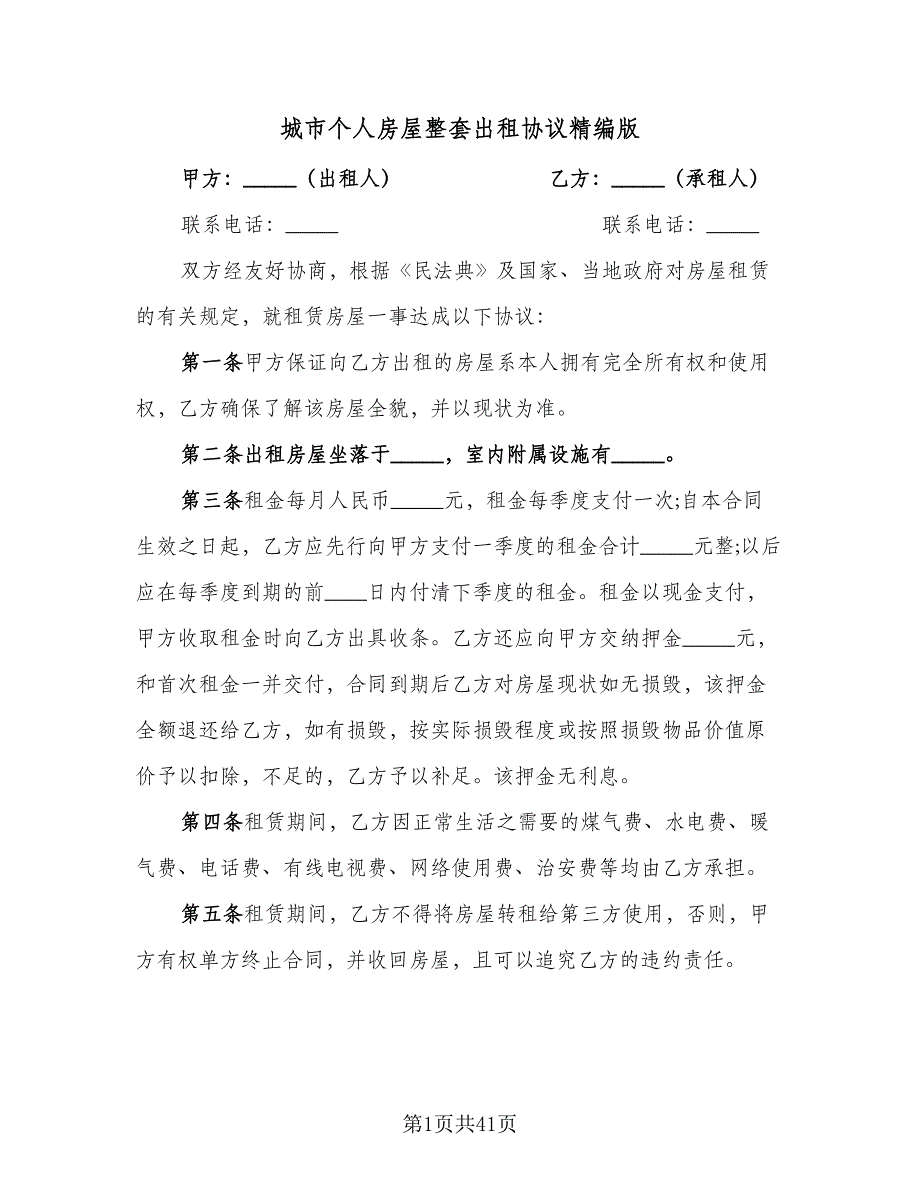 城市个人房屋整套出租协议精编版
甲方：_____（出租人） 乙方：_____（承租人）
联系电话：_____ 联系电话：_____
双方经友好协商，根据《民法典》及国家、当地政府对房屋租赁
的有关规定，就租赁房屋一事达成以下协议：
第一条甲方保证向乙方出租的房屋系本人拥有完全所有权和使用
权，乙方确保了解该房屋全貌，并以现状为准。
第二条出租房屋坐落于_____，室内附属设施有_____。
第三条租金每月人民币_____元，租金每季度支付一次;自本合同
生效之日起，乙方应先行向甲方支付一季度的租金合计_____元整;以后
应在每季度到期的前____日内付清下季度的租金。租金以现金支付，
甲方收取租金时向乙方出具收条。乙方还应向甲方交纳押金_____元，
和首次租金一并交付，合同到期后乙方对房屋现状如无损毁，该押金
全额退还给乙方，如有损毁，按实际损毁程度或按照损毁物品价值原
价予以扣除，不足的，乙方予以补足。该押金无利息。
第四条租赁期间，乙方因正常生活之需要的煤气费、水电费、暖
气费、电话费、有线电视费、网络使用费、治安费等均由乙方承担。
第五条租赁期间，乙方不得将房屋转租给第三方使用，否则，甲
方有权单方终止合同，并收回房屋，且可以追究乙方的违约责任。
第1页共41页